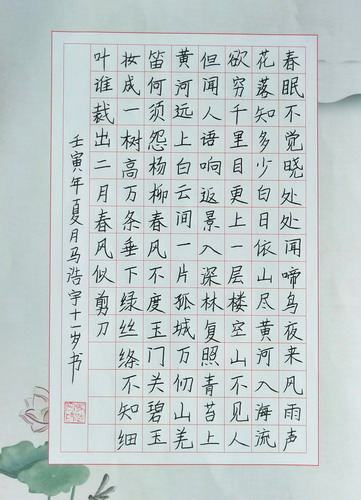 春眠不觉晓处处闻啼鸟夜来风雨声
花落知多少白日依山尽黄河入海流
欲穷千里目更上一层楼空山不见人
但闻人语响返景入深林复照青苔上
黄河远上白云间一片孤城万仞山羌
笛何须怨杨柳春风不度玉门关碧玉
妆成一树高万条垂下绿丝绦不知细
叶谁裁出二月春风似剪刀
壬寅年夏月马浩宇十一岁书